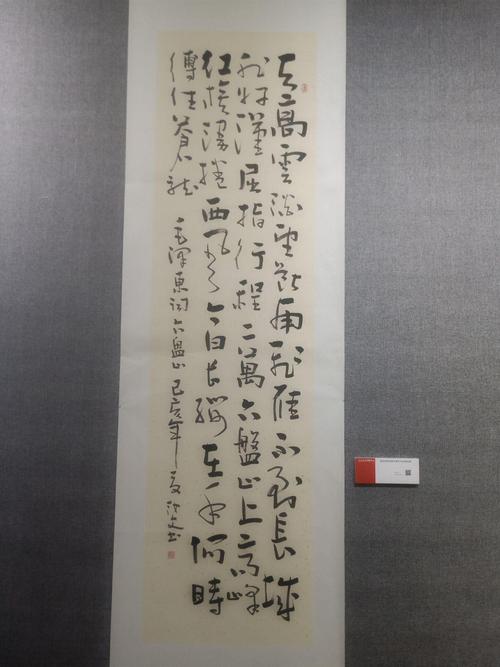 天高雲淡望斷南飛雁不到長城
非好漢屈指行程二萬六盤山上高峰
紅旗漫捲西風今日長纓在手何時
縛住蒼龍 毛澤東詞六盤山己亥年夏文书